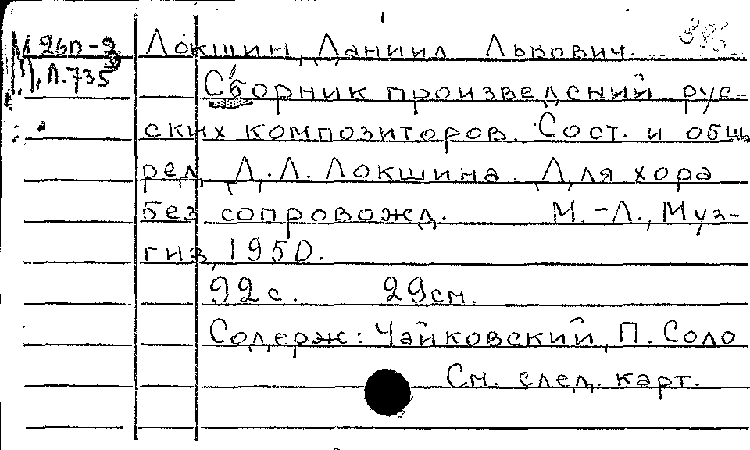 М 26п-3 Локшин, Даниил Львович.
М, Л.735 Сборник произведений рус-
ских композиторов. Сост. и общ
ред. Д. Л. Локшина. Для хора
без сопровожд. М.-Л., Муз-
гиз, 1950.
92 с. 29 см.
Содерж: Чайковский, П. Соло
См. след. карт.